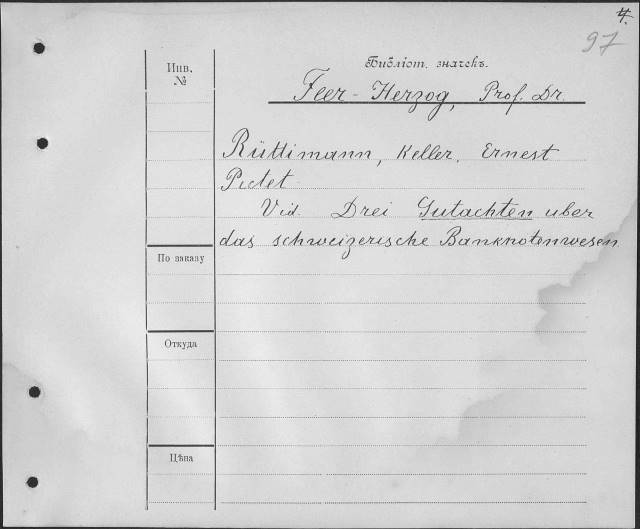 4.
97
Инв.
№
Библіот. значекъ.
Feer-Herzog, Prof. Dr.
Rüttimann, Keller, Ernest
Pictet
Vid. Drei Gutachten uber
das schweizerische Banknotenwesen
По заказу
Откуда
Цѣна